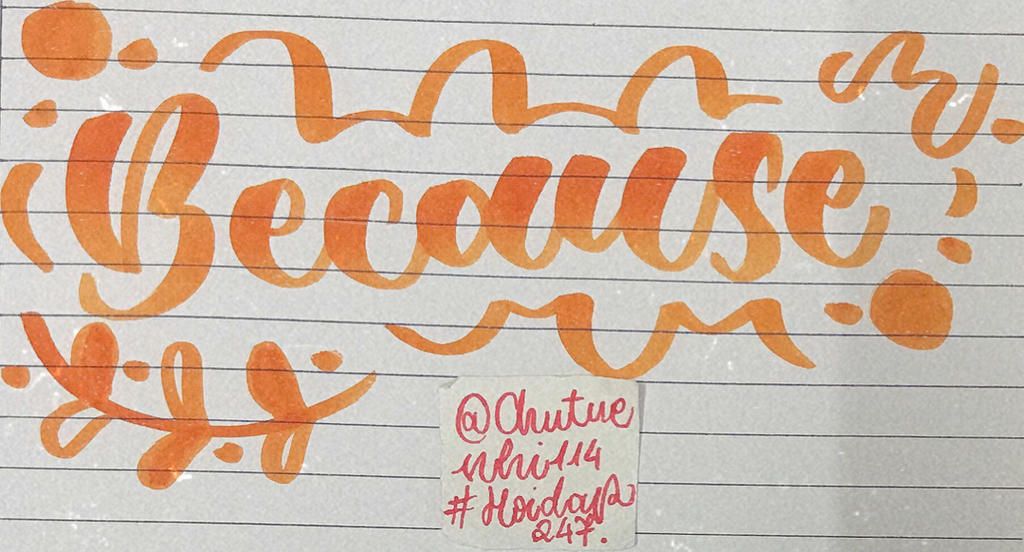 Because
@Chutue
nhi114
#Hoidap
247.